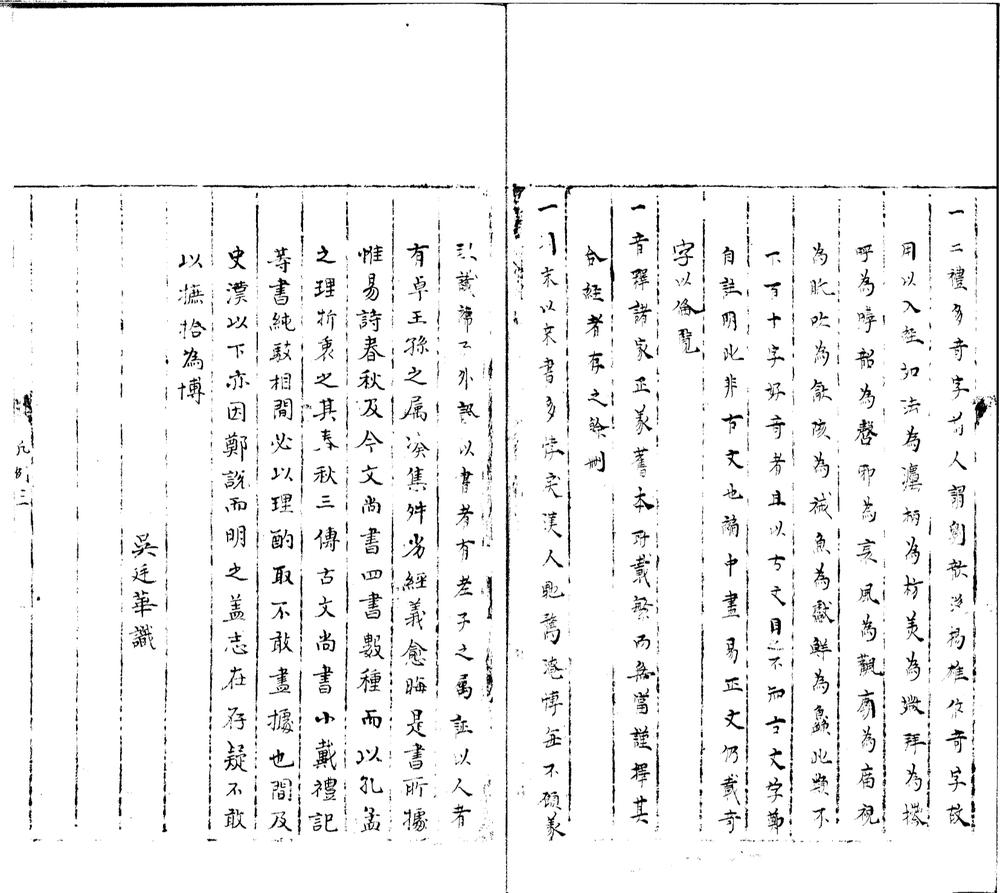 一二禮多奇字前人謂劉歆從楊雄作奇字故
用以入經如法為灋柄為枋美為媺拜為𢷎
呼為嘑韶為㲈邪為衺風為飌廟為庿視
為眡吹為龡陔為祴魚為𩼪鮮為鱻此類不
下百十字好奇者且以古文目之不知古文字鄭
自註明此非古文也論中畫易正文仍載奇
字以備覽
一音釋諸家正義舊本所載繁而無當謹擇其
合經者存之餘刪
一引
以來書多悖戾漢人馳騖淹博每不顧義
外
以書者有老子之屬証以人者
有卓王孫之屬湊集舛劣經義愈晦是書所據
惟易詩春秋及今文尚書四書數種而以孔孟
之理折衷之其春秋三傳古文尚書小戴禮記
等書純駁相間必以理酌取不敢盡據也間及
史漢以下亦因鄭說而明之蓋志在存疑不敢
以摭拾為博
吳廷華識
凡例三